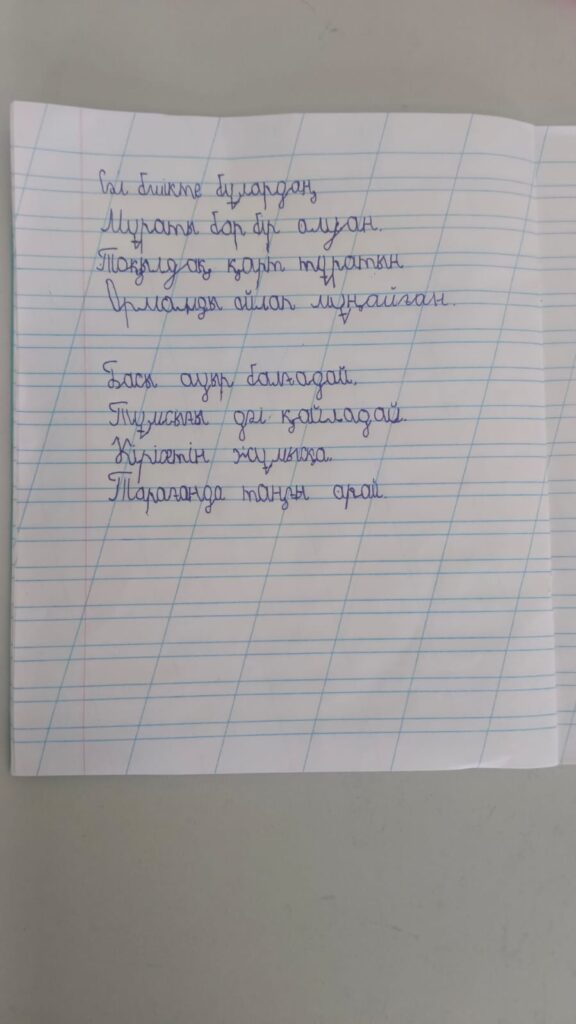 Сәл биікте бұлардан,
Мұраты бар бір алуан.
Тоқылдақ қарт тұратын
Орманды ойлап мұңайған.
Басы ауыр балғадай.
Тұмсығы дәл қайладай.
Кірісетін жұмысқа.
Тарағанда таңғы арай.